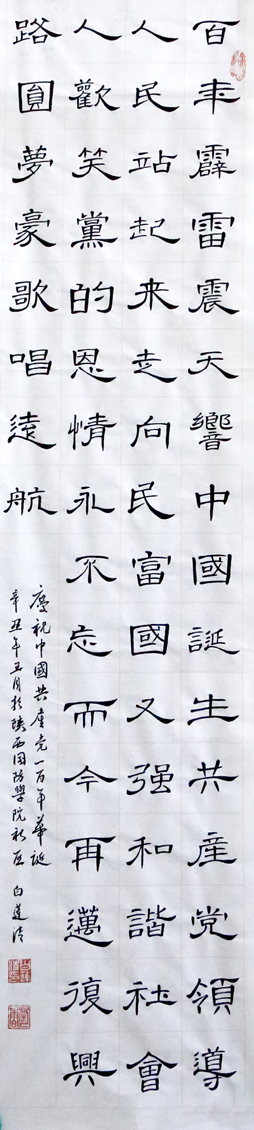 百年霹雷震天響中國誕生共産党領導
人民站起来走向民富國又强和諧社會
人人歡笑黨的恩情永不忘而今再邁復興
路圓夢豪歌唱遠航
慶祝中國共產党一百年華誕
辛丑年五月於陕西国防學院新区 白蓮清